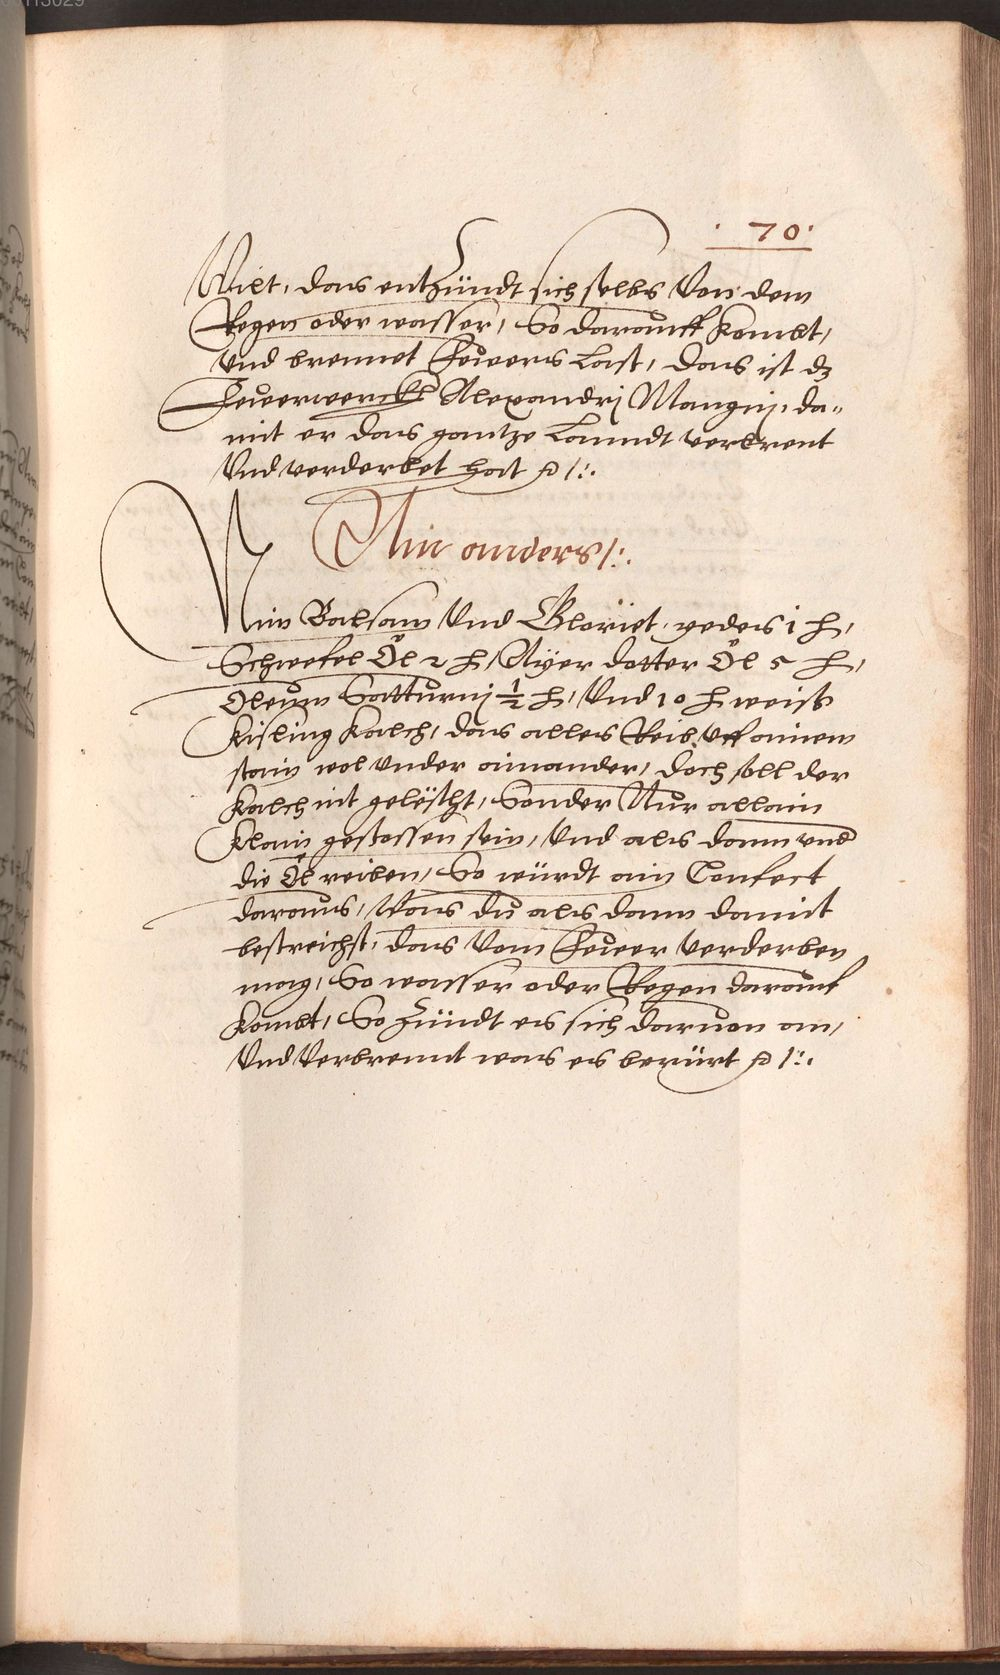 00113029
· 70 ·
Wilt, das entzündt sich selbs von dem
Regen oder wasser, So darauff kombt,
Vnd brennet Feweers Last, das ist dz
Feuerwerckh Alexandrj Mangnj, da-
mit er das gantze Lanndt verbrent
Vnd verderbet hat
Ain anders /:.
Nim Balsam Vnd Gloriet, yedes 1 ℔,
Schwefel Öl 2 ℔, Ayer dotter Öl 5 ℔,
Oleum Satturnj ½ ℔, Vnd 10 ℔ weiß
Kisling Kalch, das alles Reib vff ainem
stain wol vnder ainander, doch soll der
Kalch nit gelescht, Sonder Nur allain
Klain gestossen sein, Vnd als dann vnd
die Öl reiben, So würdt ain Confect
daraus, Was du als dann damit
bestreichst, das vom Feweer verderben
mag, So wasser oder Regen darauf
kombt, So Zündt es sich daruon an,
Vnd Verbrennt was es berürt